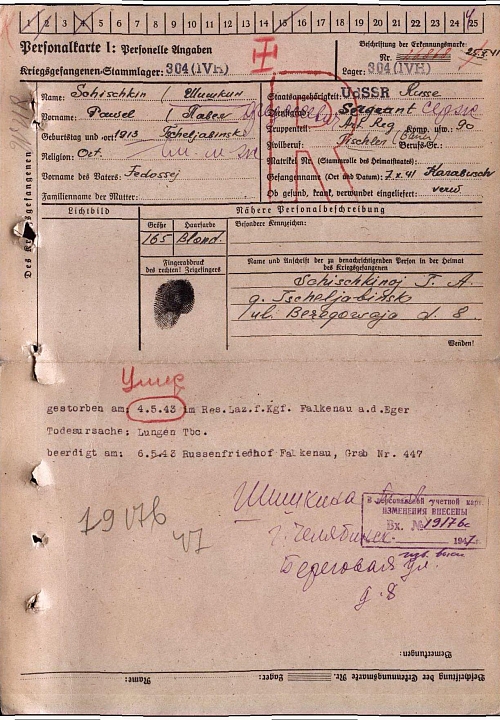 1 2 3 4 5 6 7 8 9 10 11 12 13 14 15 16 17 18 19 20 21 22 23 24 25
Personalkarte I: Personelle Angaben
Kriegsgefangenen-Stammlager: 304(IVH)
Beschriftung der Erkennungsmarke
Nr. 25.X.41
Lager: 304(IVH)
Des Kriegsgefangenen
Name: Schischkin / Шишкин
Vorname: Pawel / Павел
Geburtstag und -ort: 1913 Tscheljabinsk
Religion: Ort.
Vorname des Vaters: Fedossej
Familienname der Mutter:
Staatsangehörigkeit: UdSSR Russe
Dienstgrad: Sergeant
Truppenteil: Inf. Reg. Komp. usw. 90
Zivilberuf: Tischler Berufs-Gr.:
Matrikel Nr. (Stammrolle des Heimatstaates):
Gefangennahme (Ort und Datum): 7.X.41
Ob gesund, krank, verwundet eingeliefert: verw.
Lichtbild
Nähere Personalbeschreibung
Größe Haarfarbe
165 Blond.
Besondere Kennzeichen:
Fingerabdruck
des rechten! Zeigefingers
Name und Anschrift der zu benachrichtigenden Person in der Heimat
des Kriegsgefangenen
Schischkinoj T. A.
g. Tscheljabinsk
ul. Beregowaja d. 8
Wenden!
Умер
gestorben am: 4.5.43 im Res.Laz.f.Kgf. Falkenau a.d.Eger
Todesursache: Lungen Tbc.
beerdigt am: 6.5.43 Russenfriedhof Falkenau, Grab Nr. 447
Шишкина
В персональной учетной карт.
ИЗМЕНЕНИЯ ВНЕСЕНЫ
Вх. № 19176с
1947г.
19176
47
г. Челябинск
Береговая ул.
д. 8
Bemerkungen:
Beschriftung der Erkennungsmarke Nr. Lager: Name: